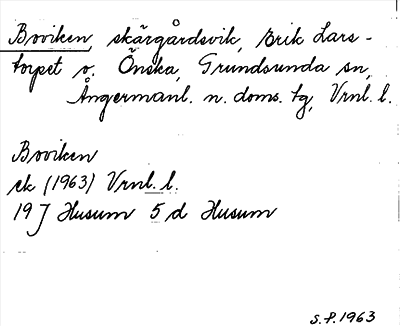 Boviken, skärgårdsvik, Erik Lars-
torpet o. Önska, Grundsunda sn,
Ångermanl. n. doms. tg, Vrnl. l.
Boviken
ek (1963) Vrnl. l.
19 J Husum 5 d Husum
S.P. 1963